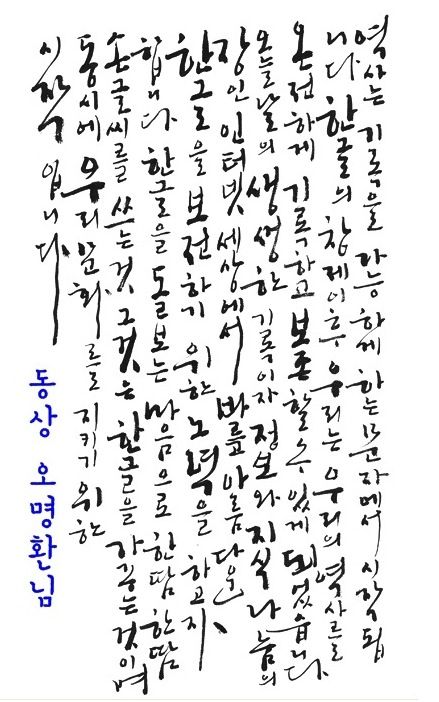 역사는 기록을 가능하게 하는 문자에서 시작됩
니다 한글의 창제 이후 우리는 우리의 역사를
온전하게 기록하고 보존할 수 있게 되었습니다
오늘날의 생생한 기록이자 정보와 지식 나눔의
장인 인터넷 세상에서 아름다운
한글을 보전하기 위한 노력을 하고자
합니다 한글을 돌보는 마음으로 한땀 한땀
손글씨를 쓰는 것 그것은 한글을 가꾸는 것이며
동시에 우리 문화를 지키기 위한
시작 입니다
동상 오명환님